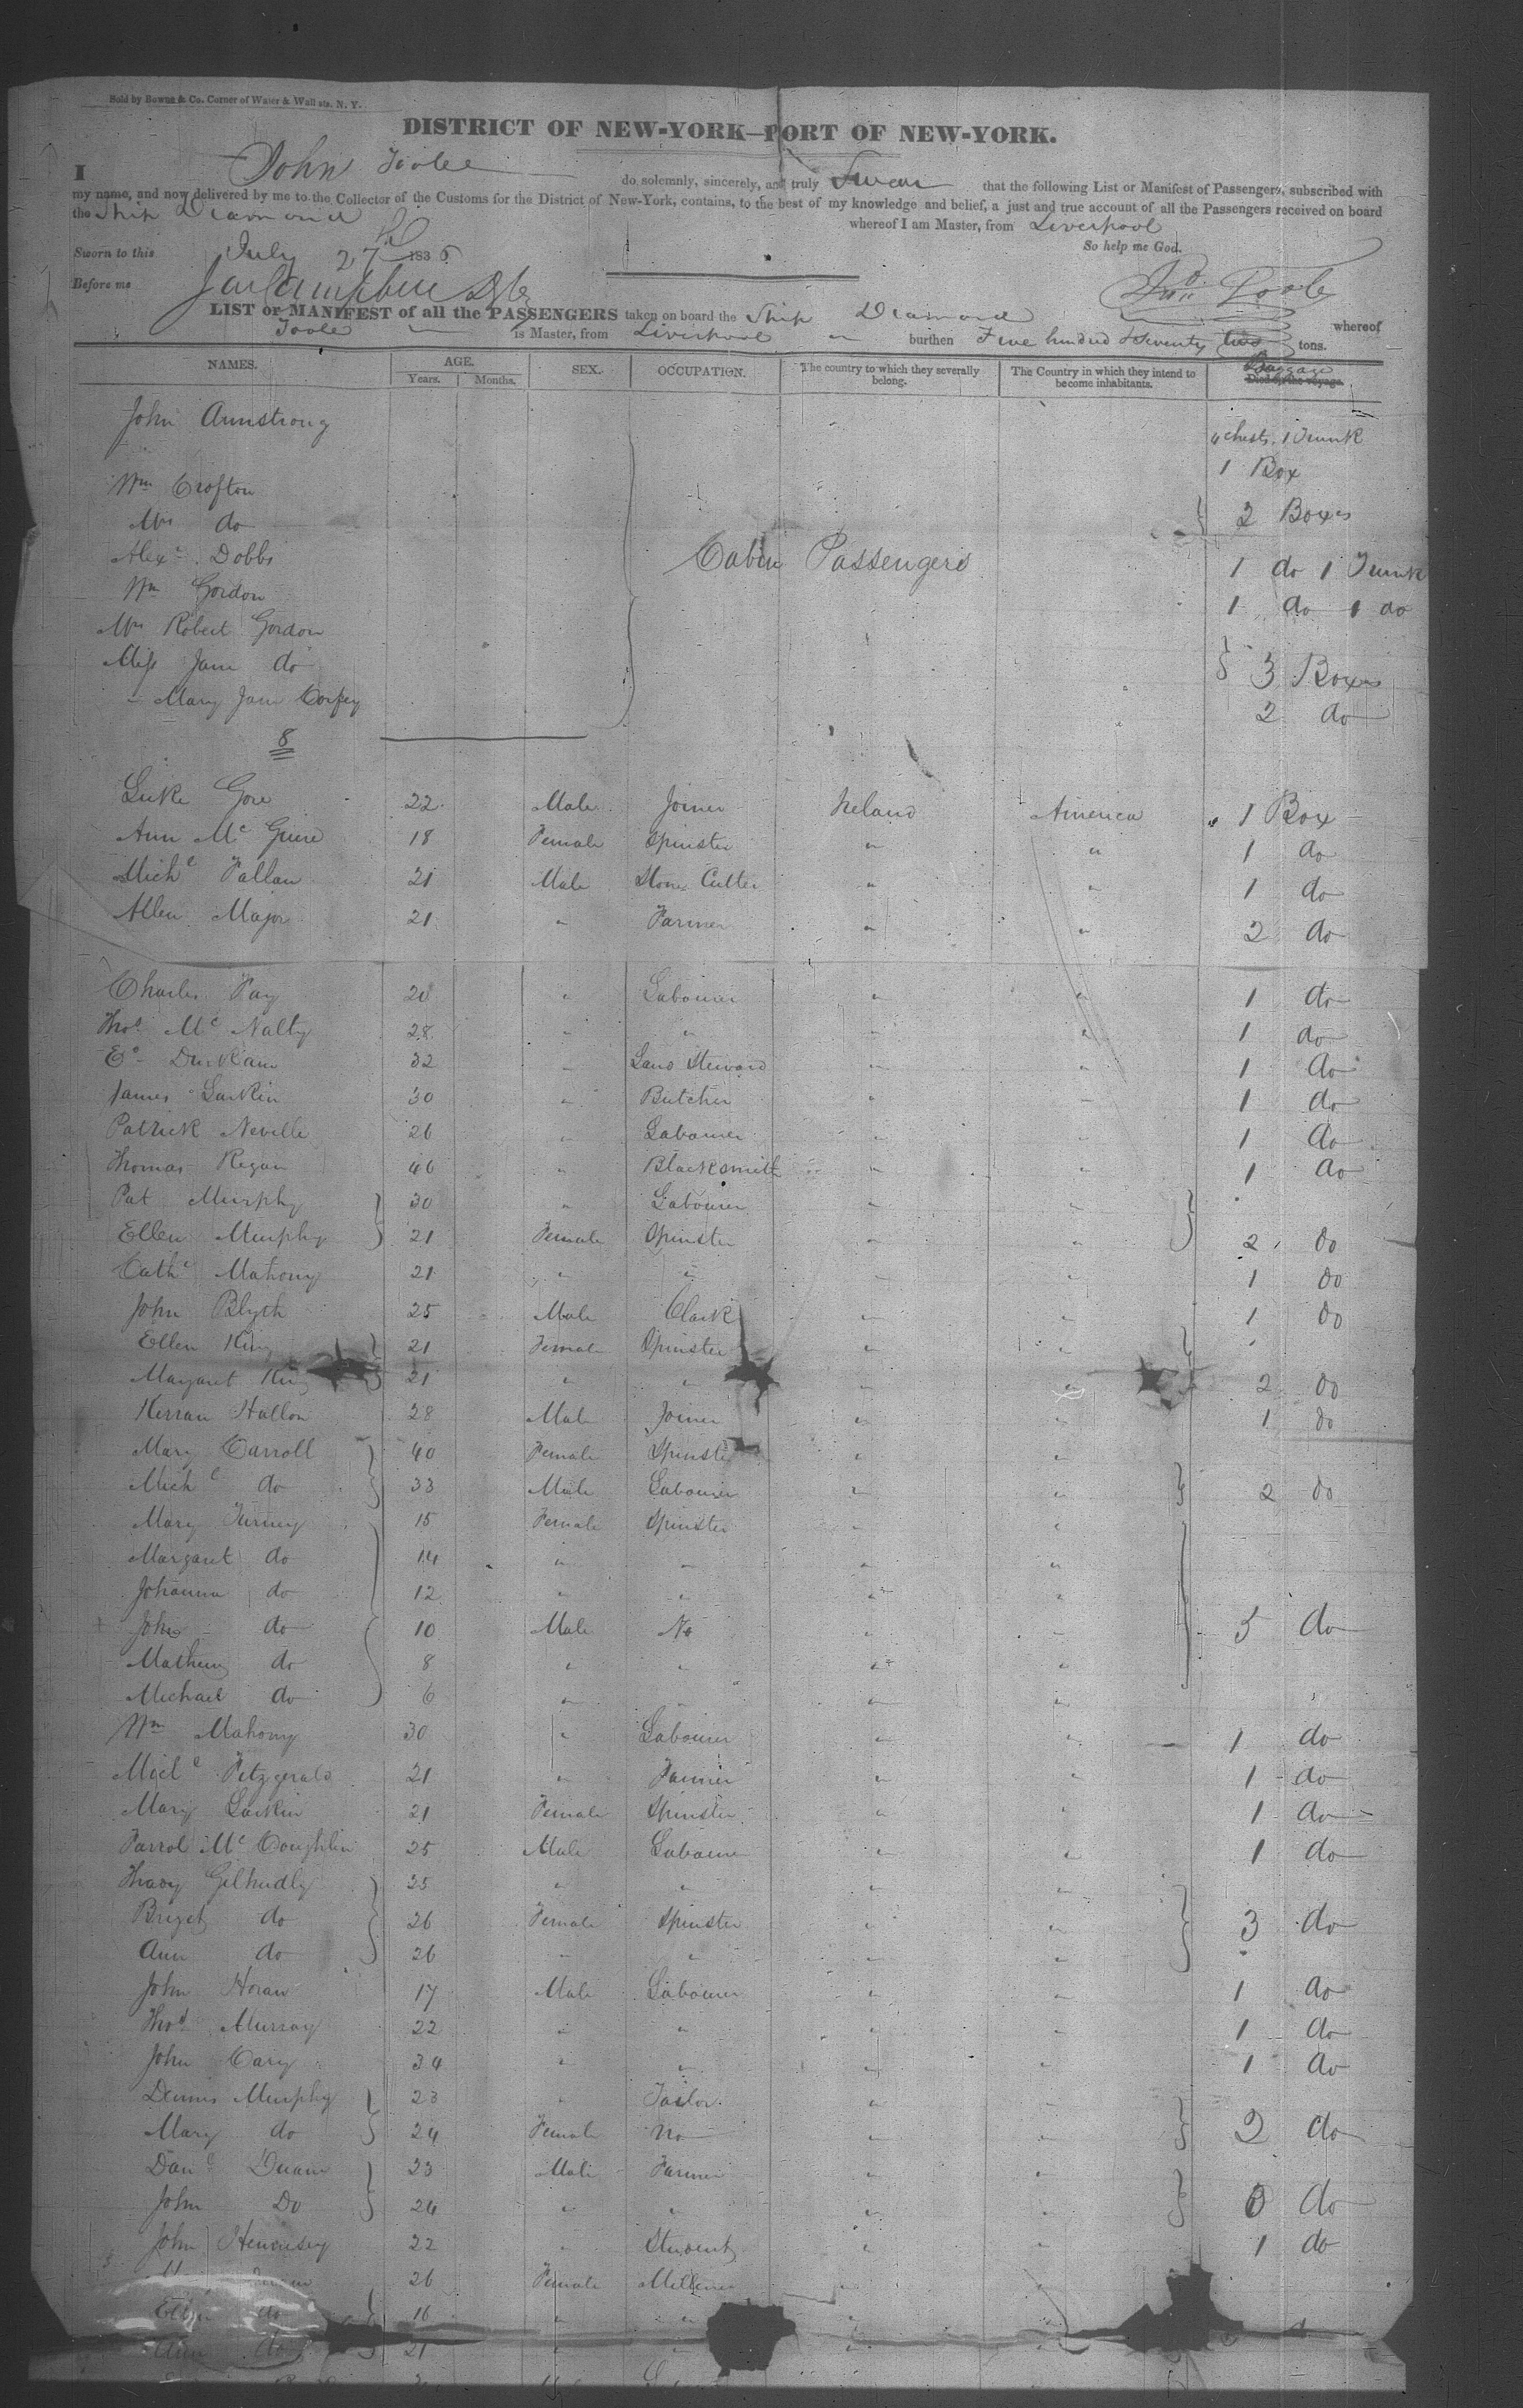 Sold by Bowne & Co. Corner of Water & Wall sts. N. Y.
DISTRICT OF NEW-YORK—PORT OF NEW-YORK.
I John Toole do solemnly, sincerely, and truly Swear that the following List or Manifest of Passengers, subscribed with
my name, and now delivered by me to the Collector of the Customs for the District of New-York, contains, to the best of my knowledge and belief, a just and true account of all the Passengers received on board
the Ship Diamond whereof I am Master, from Liverpool
Sworn to this July 27 1836 So help me God.
Before me Jas Campbell Jno Toole
LIST or MANIFEST of all the PASSENGERS taken on board the Ship Diamond whereof
Toole is Master, from Liverpool burthen Five hundred & Seventy two tons.
NAMES. AGE. SEX. OCCUPATION. The country to which they severally belong. The Country in which they intend to become inhabitants. Baggage Died on the voyage.
Years. Months.
John Armstrong 4 chests, 1 Trunk
1 Box
Wm Crofton
Mrs do 2 Boxes
Alexr Dobbs Cabin Passengers 1 do 1 Trunk
Wm Gordon 1 do 1 do
Mrs Robert Gordon
Miss Jane do 3 Boxes
" Mary Jane 2 do
8
Luke Gore 22 Male Joiner Ireland America 1 Box
Ann Mc Guire 18 Female Spinster " " 1 do
Michl Fallan 21 Male Stone Cutter " " 1 do
Allen Major 21 " Farmer " " 2 do
Charles Fay 20 " Labourer " " 1 do
Thos Mc Nalty 28 " " " " 1 do
32 " Land Steward " " 1 do
James Larkin 30 " Butcher " " 1 do
Patrick Neville 26 " Labourer " " 1 do
Thomas Regan 46 " Blacksmith " " 1 do
Pat Murphy 30 " Labourer " "
Ellen Murphy 21 Female Spinster " " 2 do
Cathe Mahony 21 " " " " 1 do
John Blyth 25 Male Clark " " 1 do
Ellen King 21 Female Spinster " "
Margaret King 21 " " " " 2 do
Kerran Hallon 28 Male Joiner " " 1 do
Mary Carroll 40 Female Spinster " "
Michl do 33 Male Labourer " " 2 do
Mary 15 Female Spinster " "
Margaret do 14 " " " "
Johanna do 12 " " " "
John do 10 Male No " " 5 do
Mathew do 8 " " " "
Michael do 6 " " " "
Wm Mahony 30 " Labourer " " 1 do
Michl Fitzgerald 21 " Farmer " " 1 do
Mary Larkin 21 Female Spinster " " 1 do
Farrol Mc Coughlin 25 Male Labourer " " 1 do
25 " " " "
Briget do 26 Female Spinster " " 3 do
Ann do 26 " " " "
John Horan 17 Male Labourer " " 1 do
Thos Murray 22 " " " " 1 do
John Cary 34 " " " " 1 do
Dennis Murphy 23 " Tailor " "
Mary do 24 Female No " " 2 do
Danl 23 Male Farmer " "
John Do 24 " " " " do
John Hennesey 22 " Student " " 1 do
26 Female Milliner "
Ellen do 16 " " " "
Ann do 21 " " "